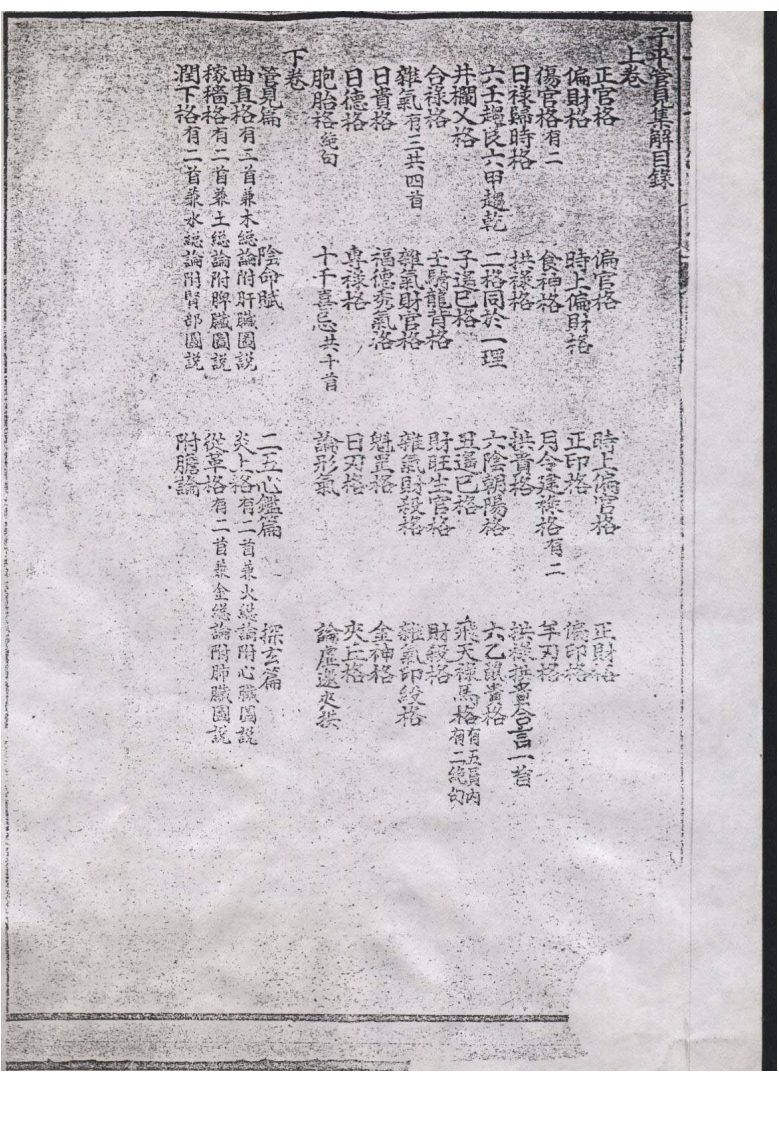 子平管見集解目錄
上卷
正官格 偏官格 時上偏官格 正財格
偏財格 時上偏財格 正印格 偏印格
傷官格有二 食神格 月令建祿格有二 羊刃格
日祿歸時格 拱祿格 拱貴格 拱祿拱貴合言一首
六壬趨艮六甲趨乾 二格同於一理 六陰朝陽格 六乙鼠貴格
井欄乂格 子遙巳格 丑遙巳格 飛天祿馬格有五首內有二絶句
合祿格 壬騎龍背格 財旺生官格 財殺格
雜氣有三共四首 雜氣財官格 雜氣財殺格 雜氣印綬格
日貴格 福德秀氣格 魁罡格 金神格
日德格 專祿格 日刃格 夾丘格
胞胎格絶句 十干喜忌共十首 論形氣 論虛邀夾拱
下卷
管見篇 陰命賦 二五心鑑篇 探玄篇
曲直格有三首兼木總論附肝臟圖說 炎上格有二首兼火總論附心臟圖說
稼穡格有二首兼土總論附脾臟圖說 從革格有二首兼金總論附肺臟圖說
潤下格有二首兼水總論附腎部圖說 附膽論